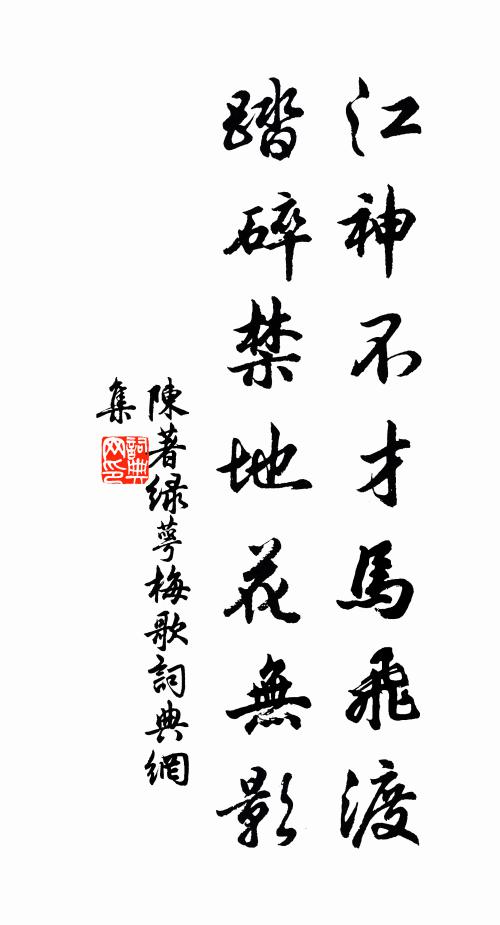 江神不才馬飛渡
踏碎禁地花無影
陳著緑萼梅歌詞典網
集
詞典
网印